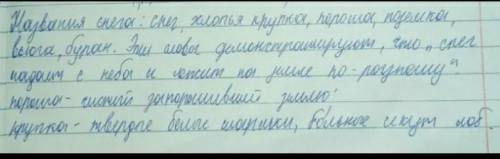 Названия снега: снег, хлопья крупка, пороша, поземка,
вьюга, буран. Эти слова демонстрируют, что „снег
падает с неба и лежит на земле по-разному".
пороша - снег запорошивший землю.
крупка - твердые белые шарики, больно секут лоб.